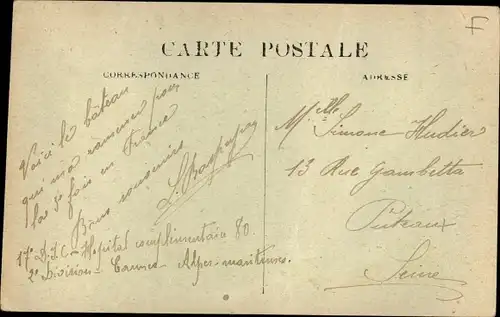 CARTE POSTALE
CORRESPONDANCE
ADRESSE
F
Voici le bâteau
qui m'a ramener pour
la 3e fois en France
Bons souvenirs
17e D.I.C - Hopital complimentaire 80
2e Division - Cannes - Alpes-maritimes.
Melle Simone Hudier
13 Rue Gambetta
Puteaux
Seine